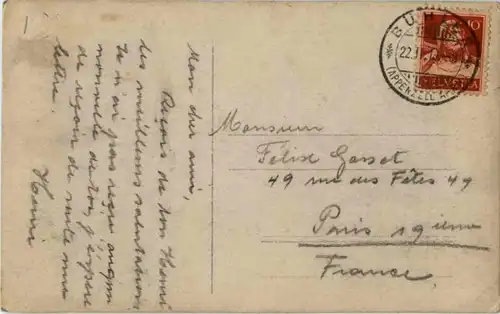 Mon cher ami,
Reçois de ton Henri
les meilleurs salutations
Je n'ai pas reçu aucun
nouvelle de toi, j'éspère
de reçoir de suite une
lettre.
Henri
BÜH
22.
(APPENZELL A.
10
HELVETIA
Monsieur
Félix Gasset
49 rue des Fêtes 49
Paris 19ième
France